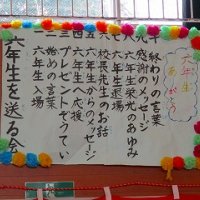 六年生を送る会
一 六年生入場
二 始めの言葉
三 プレゼントぞうてい
四 六年生へ応援
五 六年生からのメッセージ
六 校長先生のお話
七 六年生退場
八 六年生栄光のあゆみ
九 感謝のメッセージ
十 終わりの言葉
六年生
ありがとう